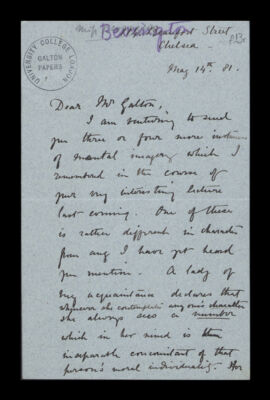 Miss Bevington
Beaufort Street
Chelsea.
UNIVERSITY COLLEGE LONDON
GALTON
PAPERS
May 14th 81.
Dear Mr Galton,
I am venturing to send
you three or four more instances
of mental imagery which I
remembered in the course of
your very interesting lecture
last evening. One of these
is rather different in character
from any I have yet heard
you mention. A lady of
my acquaintance declares that
whenever she contemplates anyone's character
she always sees a number
which in her mind is the
inseparable concomitant of that
person's moral individuality. Nor